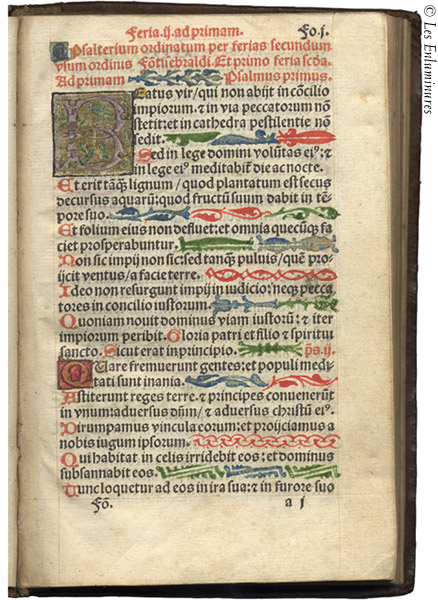 Feria.ij.ad primam. Fo.j.
Psalterium ordinatum per ferias secundum
vsum ordinis Fōtisebraldi. Et primo feria scďa.
Ad primam Psalmus primus.
BEatus vir/qui non abijt in cōcilio
impiorum: & in via peccatorum nō
stetit: et in cathedra pestilentie nō
sedit.
Sed in lege domini volūtas eiꝰ: &
in lege eiꝰ meditabiť die ac nocte.
Et erit tāqȝ lignum/quod plantatum est secus
decursus aquarū: quod fructū suum dabit in tē-
pore suo.
Et folium eius non defluet: et omnia quecūqȝ fa
ciet prosperabuntur.
Non sic impij non sic: sed tanqȝ puluis/quē pro-
ijcit ventus/a facie terre.
Ideo non resurgunt impij in iudicio: neqȝ pecca
tores in concilio iustorum.
Quoniam nouit dominus viam iustorū: & iter
impiorum peribit. Gloria patri et filio & spiritui
sancto. Sicut erat in principio. p̄s. ij.
QUare fremuerunt gentes: et populi medi
tati sunt inania.
Astiterunt reges terre. & principes conuenerūt
in vnum: aduersus dn̄m/& aduersus christū eiꝰ.
Dirumpamus vincula eorum: et proijciamus a
nobis iugum ipsorum.
Qui habitat in celis irridebit eos: et dominus
subsannabit eos.
Tunc loquetur ad eos in ira sua: & in furore suo
Fō. a j
© Les Enluminures